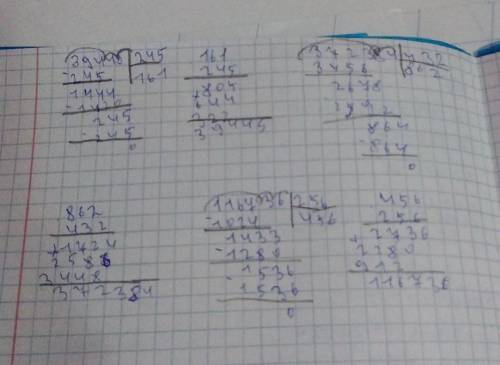 39445 | 245
- 245 | 161
1494
- 1470
245
- 245
0
161
245
805
+ 644
322
39445
372384 | 432
3456 | 862
2678
2592
864
- 864
0
862
432
+ 1724
2586
3448
372384
116736 | 256
- 1024 | 456
1433
- 1280
1536
- 1536
0
456
256
+ 2736
2280
912
116736